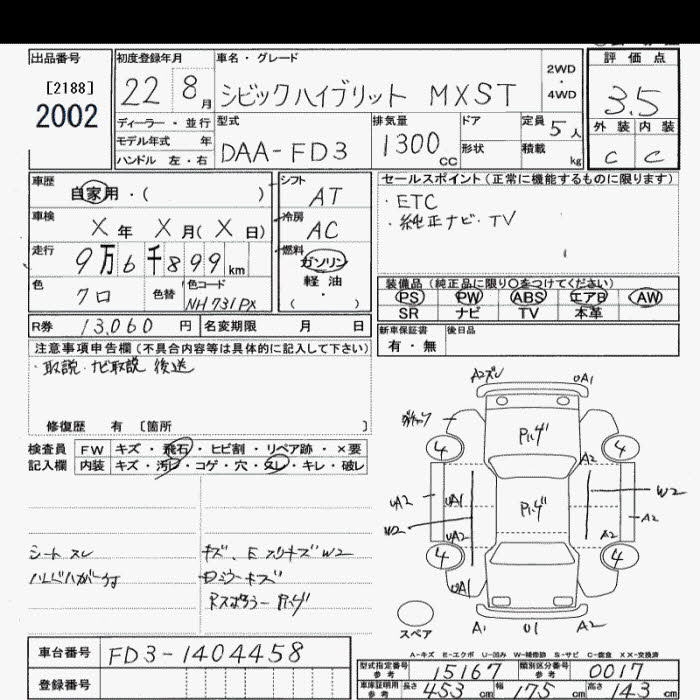 出品番号
[2188]
2002
初度登録年月
22 8月
車名・グレード
シビックハイブリット MXST
2WD
・
4WD
評価点
3.5
外装 内装
C C
ディーラー・並行
モデル年式 年
ハンドル 左・右
型式
DAA-FD3
排気量
1300 CC
ドア
形状
定員 5人
積載 kg
車歴
自家用・( )
車検
X年 X月(X日)
走行
9万6千899km
色
クロ
色替
色コード
NH731PX
シフト
AT
冷房
AC
燃料
ガソリン
軽油
( ・ )
セールスポイント(正常に機能するものに限ります)
・ETC
・純正ナビ・TV
装備品(純正品に限り○をつけてください)
PS PW ABS エアB AW
SR ナビ TV 本革
R券 13,060円
名変期限 月 日
新車保証書
有・無
後日品
注意事項申告欄(不具合内容等は具体的に記入して下さい)
・取説・ナビ取説 後送
修復歴 有 〔箇所 〕
検査員 FW キズ・飛石・ヒビ割・リペア跡・×要
記入欄 内装 キズ・汚レ・コゲ・穴・スレ・キレ・破レ
シート スレ
キズ、E スリキズ W2
A2ズレ UA1
Pハゲ
4 4
A2
UA2 UA1
W2
Pハゲ
W2
A2
UA2 A2
4 4
UA1
A2
A1 U1
スペア
A-キズ E-エクボ U-凹み W-補修跡 S-サビ C-腐食 XX-交換済
車台番号 FD3-1404458
登録番号
型式指定番号
参考
15167
類別区分番号
参考
0017
車庫証明用
参考
長さ 453cm 幅 175cm 高さ 143cm